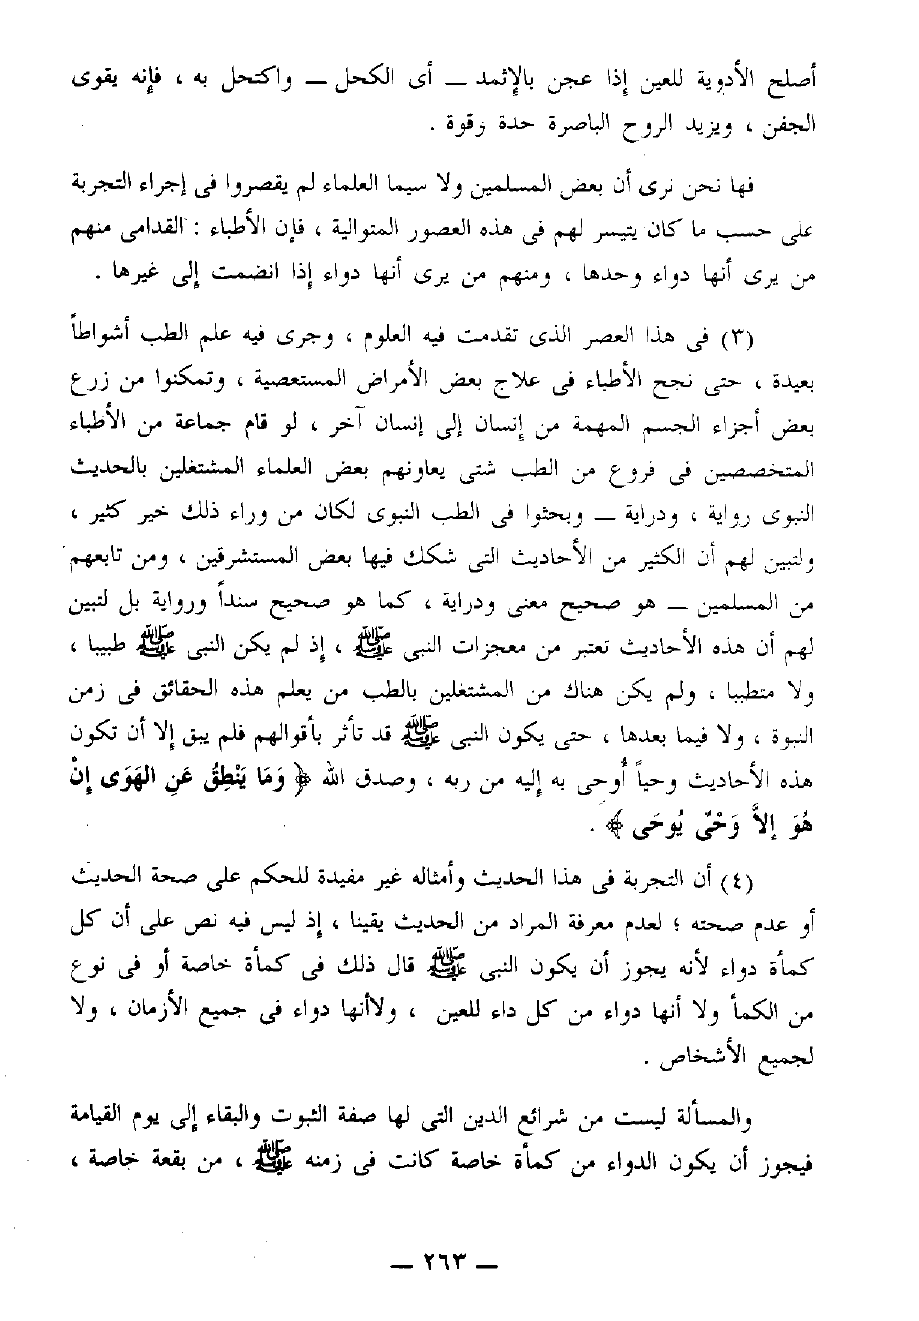 أصلح الأدوية للعين إذا عجن بالإثمد ــ أى الكحل ــ واكتحل به ، فإنه يقوى
الجفن ، ويزيد الروح الباصرة حدة وقوة .
فها نحن نرى أن بعض المسلمين ولا سيما العلماء لم يقصروا فى إجراء التجربة
على حسب ما كان يتيسر لهم فى هذه العصور المتوالية ، فإن الأطباء : القدامى منهم
من يرى أنها دواء وحدها ، ومنهم من يرى أنها دواء إذا انضمت إلى غيرها .
(٣) فى هذا العصر الذى تقدمت فيه العلوم ، وجرى فيه علم الطب أشواطاً
بعيدة ، حتى نجح الأطباء فى علاج بعض الأمراض المستعصية ، وتمكنوا من زرع
بعض أجزاء الجسم المهمة من إنسان إلى إنسان آخر ، لو قام جماعة من الأطباء
المتخصصين فى فروع من الطب شتى يعاونهم بعض العلماء المشتغلين بالحديث
النبوى رواية ، ودراية ــ وبحثوا فى الطب النبوى لكان من وراء ذلك خير كثير ،
ولتبين لهم أن الكثير من الأحاديث التى شكك فيها بعض المستشرقين ، ومن تابعهم
من المسلمين ــ هو صحيح معنى ودراية ، كما هو صحيح سنداً ورواية بل لتبين
لهم أن هذه الأحاديث تعتبر من معجزات النبى ﷺ ، إذ لم يكن النبى ﷺ طبيبا ،
ولا متطببا ، ولم يكن هناك من المشتغلين بالطب من يعلم هذه الحقائق فى زمن
النبوة ، ولا فيما بعدها ، حتى يكون النبى ﷺ قد تأثر بأقوالهم فلم يبق إلا أن تكون
هذه الأحاديث وحياً أُوحى به إليه من ربه ، وصدق الله ﴿ وَمَا يَنْطِقُ عَنِ الهَوَى إِنْ
هُوَ إلاَّ وَحْىٌ يُوحَى ﴾ .
(٤) أن التجربة فى هذا الحديث وأمثاله غير مفيدة للحكم على صحة الحديث
أو عدم صحته ؛ لعدم معرفة المراد من الحديث يقينا ، إذ ليس فيه نص على أن كل
كمأة دواء لأنه يجوز أن يكون النبى ﷺ قال ذلك فى كمأة خاصة أو فى نوع
من الكمأ ولا أنها دواء من كل داء للعين ، ولاأنها دواء فى جميع الأزمان ، ولا
لجميع الأشخاص .
والمسألة ليست من شرائع الدين التى لها صفة الثبوت والبقاء إلى يوم القيامة
فيجوز أن يكون الدواء من كمأة خاصة كانت فى زمنه ﷺ ، من بقعة خاصة ،
ــ ٢٦٣ ــ